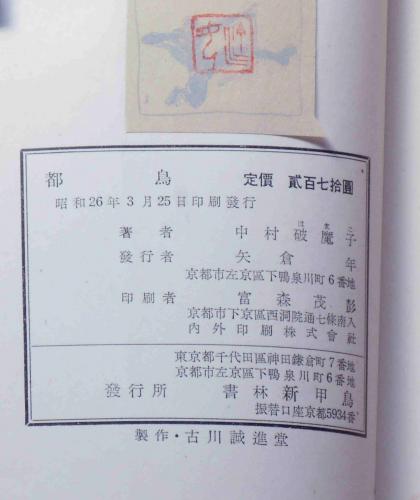 都鳥 定價 貳百七拾圓
昭和26年3月25日印刷發行
著者 中村破魔子
發行者 矢倉年
京都市左京區下鴨泉川町6番地
印刷者 富森茂彭
京都市下京區西洞院通七條南入
內外印刷株式會社
東京都千代田區神田鎌倉町7番地
京都市左京區下鴨泉川町6番地
發行所 書林新甲鳥
振替口座京都5934番
製作・古川誠進堂